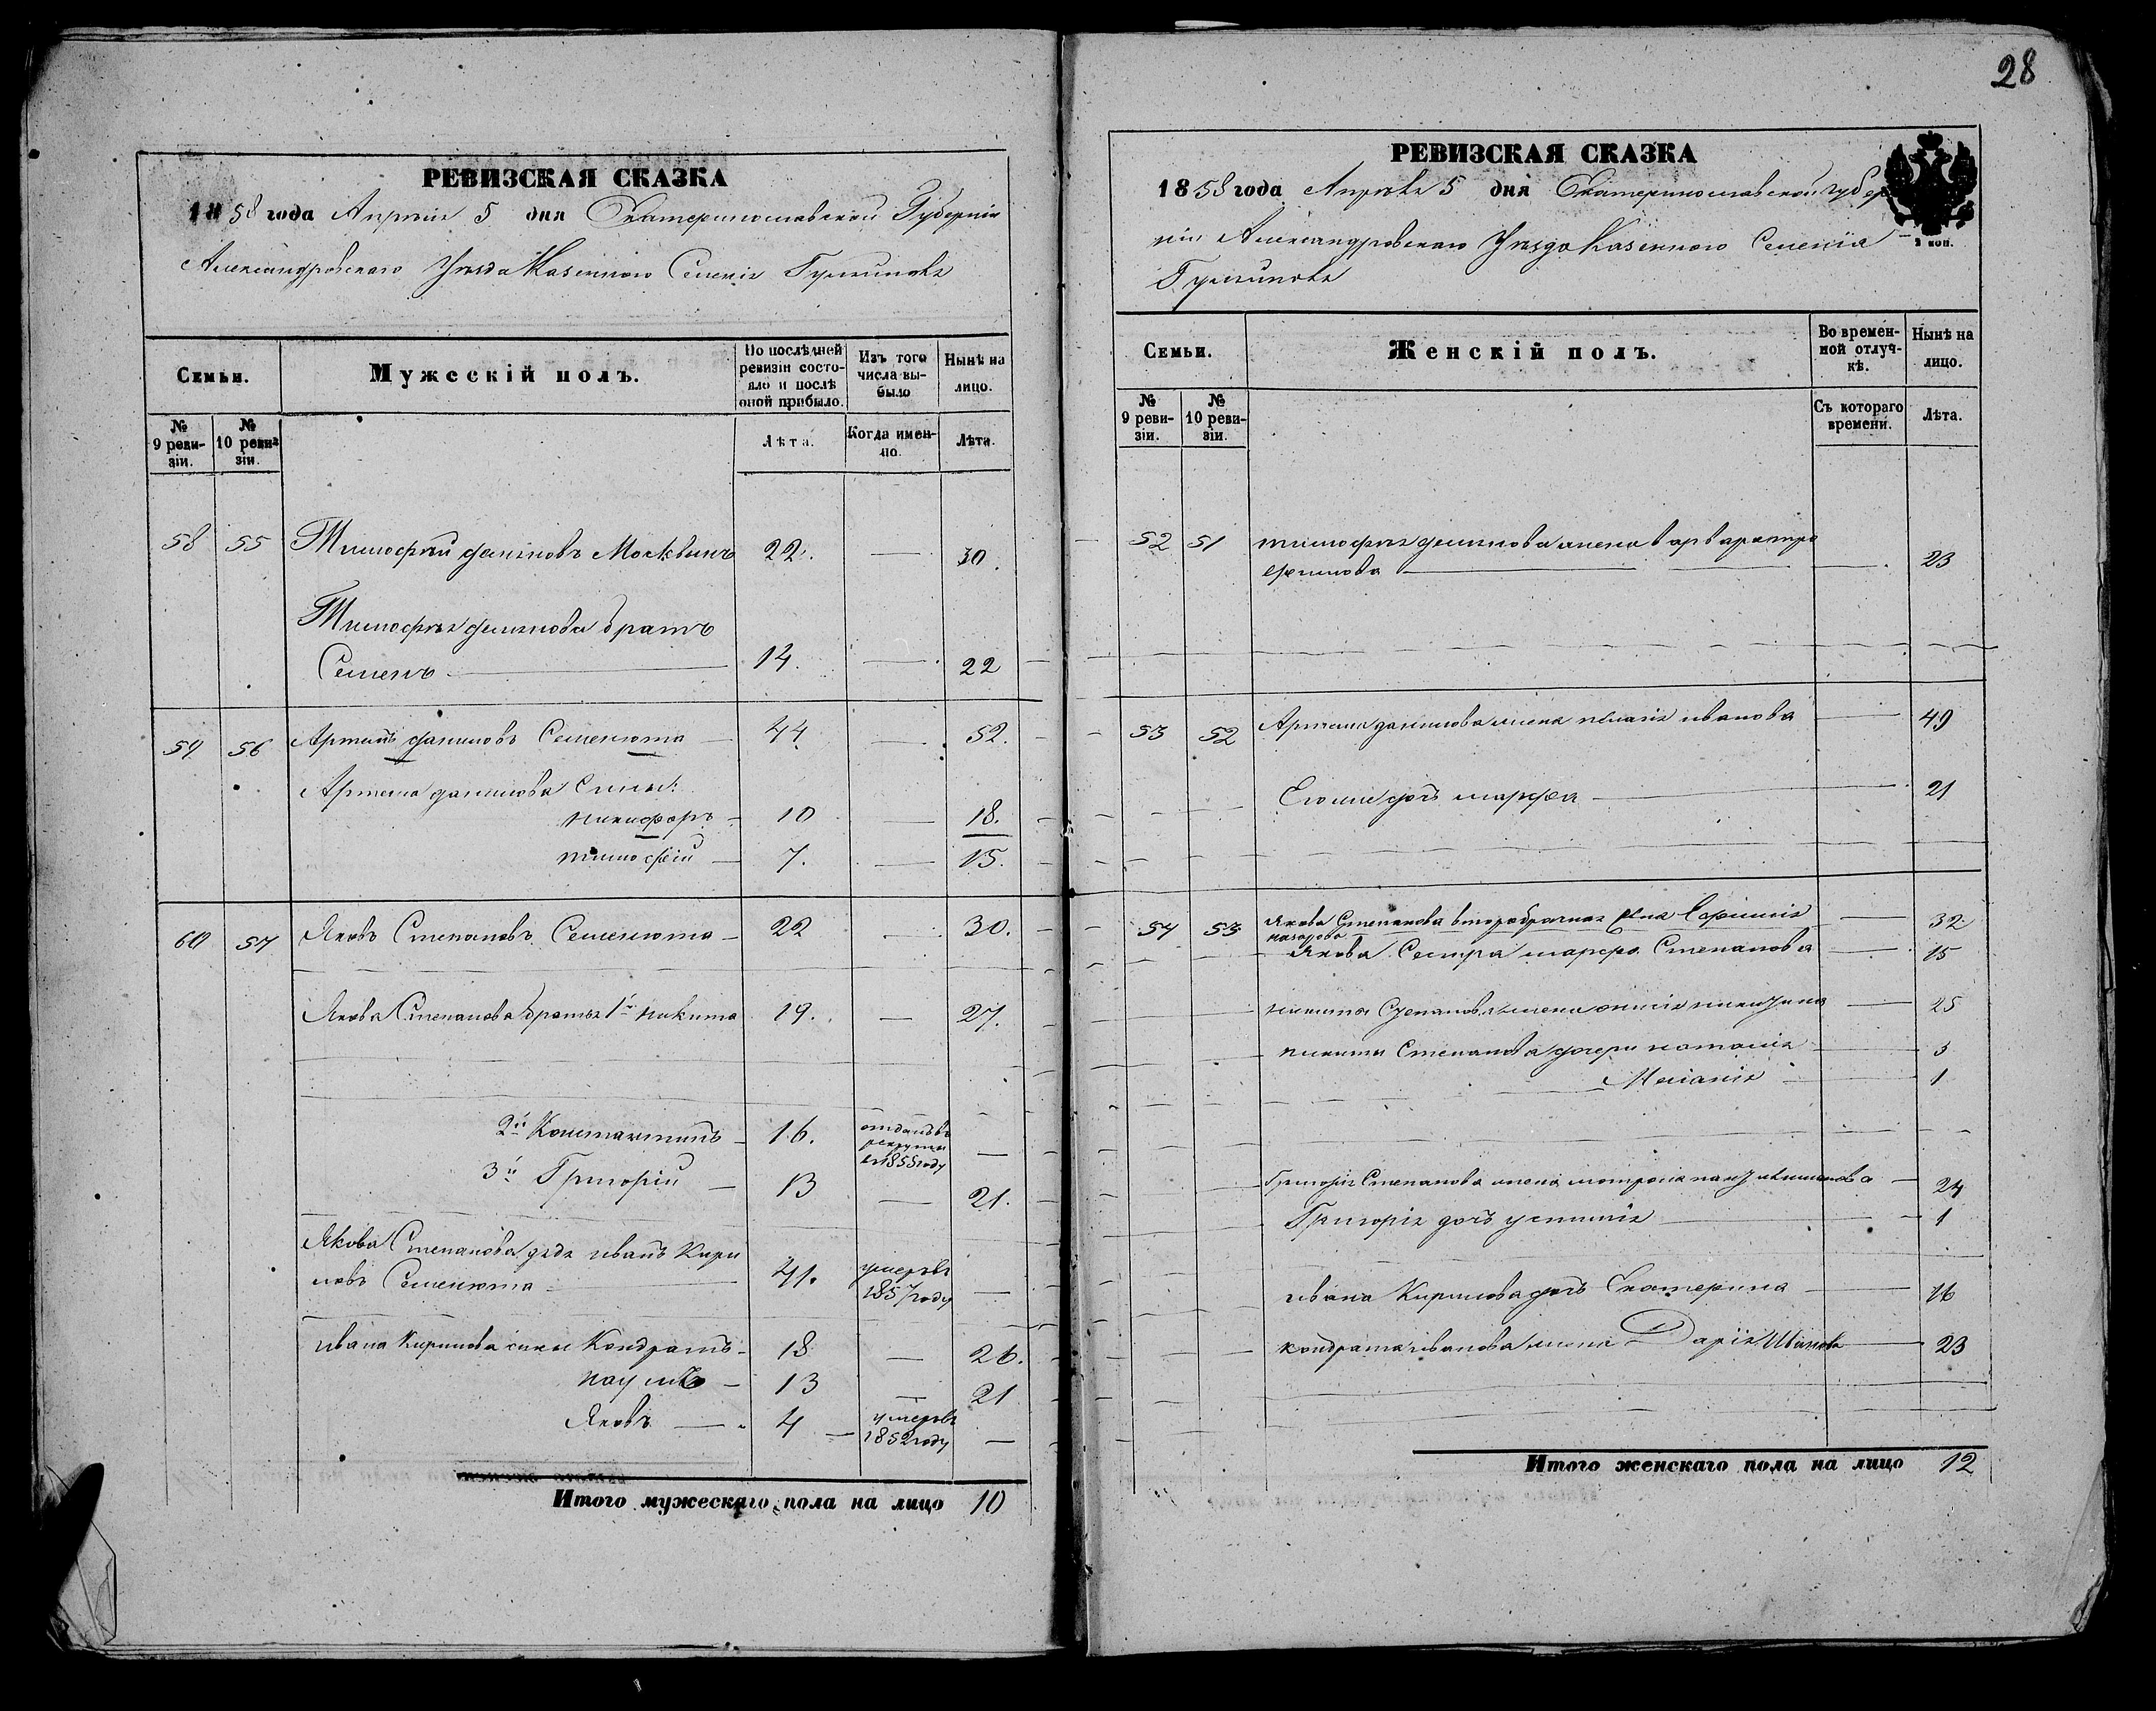 РЕВИЗСКАЯ СКАЗКА
1858 года Апреля 5 дня Екатеринославской Губернiи
Александровскаго Уезда Казенного Селенiя Гуляйполя
Семьи.
Мужескiй полъ.
По послѣдней ревизiи состояло и послѣ оной прибыло.
Изъ того числа выбыло
Нынѣ на лицо.
№ 9 ревизiи.
№ 10 ревизiи.
Лѣта.
Когда именно.
Лѣта.
58 55 Тимофей Москвинъ 22. — 30.
Тимофея братъ
Семенъ — 14. — 22
59 56 Артемъ Даниловъ Семенюта — 44 — 52.
Артема Данилова Сыны:
никифоръ — 10 — 18.
тимофей — 7. — 15.
60 57 Яковъ Степановъ Семенюта — 22 — 30.
Якова Степанова братья 1й никита 19. — 27.
2й Константинъ — 16. отданъ въ рекруты въ 1855 году —
3й Григорiй — 13 — 21.
Якова Степанова дядя иванъ Кири
ловъ Семенюта — 41. умеръ въ 1857 году —
ивана Кирилова сыны Кондратъ — 18 — 26.
наумъ — 13 — 21
Яковъ — 4 — умеръ въ 1852 году —
Итого мужескаго пола на лицо 10
28
РЕВИЗСКАЯ СКАЗКА
1858 года Апреля 5 дня Екатеринославской губер
нiи Александровскаго Уезда Казенного Селенiя
Гуляйполя
2 коп.
Семьи.
Женскiй полъ.
Во временной отлучкѣ.
Нынѣ на лицо.
№ 9 ревизiи.
№ 10 ревизiи.
Съ котораго времени.
Лѣта.
52 51 тимофея жена варвара тро
фимова — 23
53 52 Артема данилова жена пелагея иванова — 49
Его же дочь марфа — 21
54 53 Якова Степанова второбрачная жена Ефимiя
назарова — 32
Якова Сестра марфа Степанова — 15
никиты Степанова жена — 25
никиты Степанова дочери наталiя — 3
Меланiя — 1
Григорiя Степанова жена матрона — 24
Григорiя дочь устинiя — 1
ивана Кирилова дочь Екатерина — 16
кондрата иванова жена Дарiя Иванова — 23
Итого женскаго пола на лицо 12